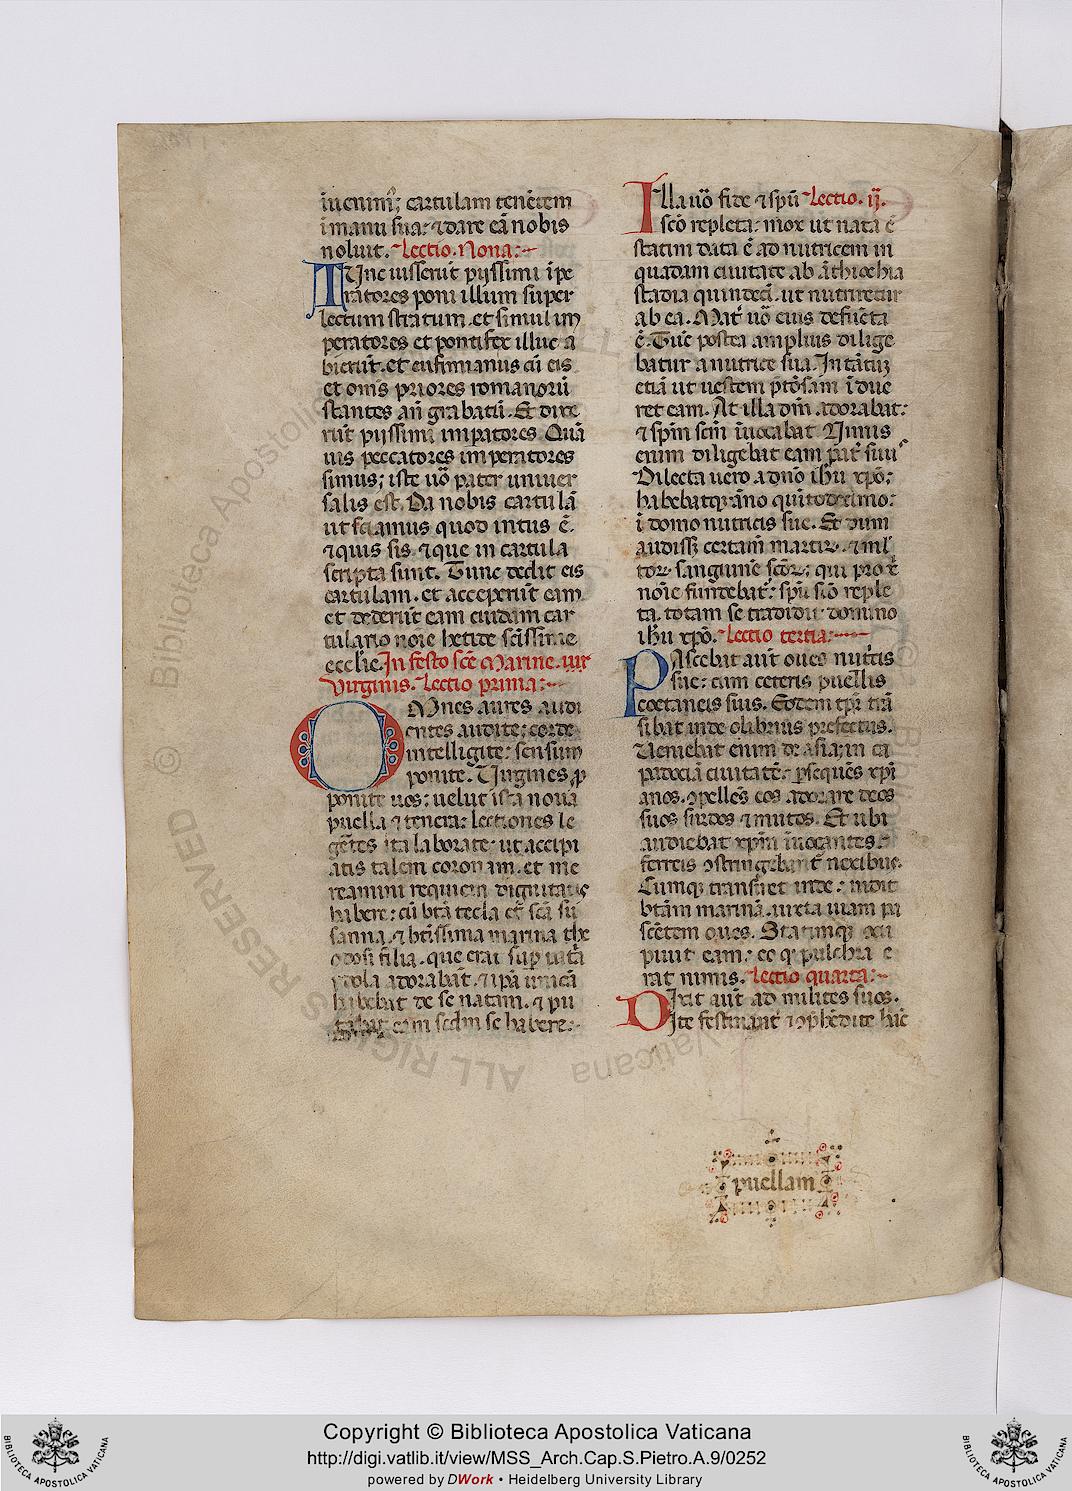 inuenim9; cartulam tenētem
ī manu sua: ⁊ dare eā nobis
noluit. Lectio. Nona:
TUnc iusserūt pijssimi īpe
ratores poni illum super
lectum stratum. et simul im
peratores et pontifex illuc a
bierūt. et eufimianus cū eis
et om̄s priores romanorū
stantes añ grabatū. Et dixe
rūt pijssimi imꝑatores Quā
uis peccatores imperatores
simus; iste uō pater uniuer
salis est. Da nobis cartulā
ut sciamus quod intus ē.
⁊ quis sis. ⁊ que in cartula
scripta sunt. Tunc dedit eis
cartulam. et acceperūt eam
et dederūt eam cuidam car
tulario noīe hetide sc̄issime
eccl'ie. In festo sc̄e Marine
Virginis. Lectio prima:
OMnes aures audi
entes audite: corde
intelligite: sensum
ponite. Uirgines ꝓ
ponite uos: uelut ista noua
puella ⁊ tenera: lectiones le
gētes ita laborate: ut accipi
atis talem coronam. et me
reamini requiem dignitatis
habere: cū bt̄a tecla et sc̄a su
sanna. ⁊ bt̄issima marina the
odosi filia. que erat
ydola adorabāt. ⁊ ip̄ā unicā
habebat de se natam. ⁊ pu
tabat eam scdm se habere:
Illa uō fide ⁊ sp̄u Lectio. ij.
sc̄o repleta: mox ut nata ē
statim data ē ad nutricem in
quadam ciuitate ab āthiochia
stadia quindeci. ut nutriretur
ab ea. Mat' uō eius defūcta
ē. Tūc postea amplius dilige
batur a nutrice sua. In tātū
etiā ut uestem p̄tōsam īdue
ret eam. At illa dn̄m adorabat:
⁊ sp̄m sc̄m īuocabat Nimis
enim diligebat eam pat' suus
Dilecta uero a dn̄o ih̄u xp̄o;
habebatq; āno quītodecimo:
ī domo nutricis sue. Et dum
audiss; certam martirꝝ. ⁊ ml'
torꝝ sanguinē sc̄orꝝ: qui pro x̄
noīe fundebat': sp̄u sc̄o reple
ta. totam se tradidit domino
ih̄u xp̄o. Lectio tertia:
PAscebat aut oues nut'cis
sue: cum ceteris puellis
coetaneis suis. Eodem tp̄r trā
sibat inde olibrius prefectus.
Ueniebat enim de asia: in ca
padociā ciuitatē: ꝑsequēs xp̄i
anos. ꝯpellēs eos adorare deos
suos surdos ⁊ mutos. Et ubi
audiebat xp̄m īuocantes:
ferreis ꝯstringebant' nexibus.
Cumq; transiret inde: uidit
bt̄am marinā. iuxta uiam pa
scētem oues. Statimq; cu
piuit eam: eo q; pulchra e
rat nimis. Lectio quarta:
DIxit aut ad milites suos.
Ite festinant' ⁊ ꝯp̄hēdite hāc
puellam
Copyright © Biblioteca Apostolica Vaticana
http://digi.vatlib.it/view/MSS_Arch.Cap.S.Pietro.A.9/0252
powered by DWork • Heidelberg University Library
BIBLIOTECA APOSTOLICA VATICANA
BIBLIOTECA APOSTOLICA VATICANA
© Biblioteca Apostolica Vaticana
ALL RIGHTS RESERVED